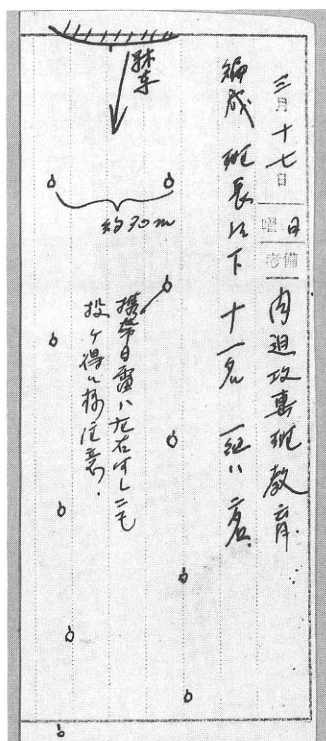 三月十七日 日曜 備考 肉迫攻撃班教育
編成 班長以下十一名 一組ハ二名
敵車
約30m
携帯地雷ハ左右何レニモ
投ゲ得ル様注意.